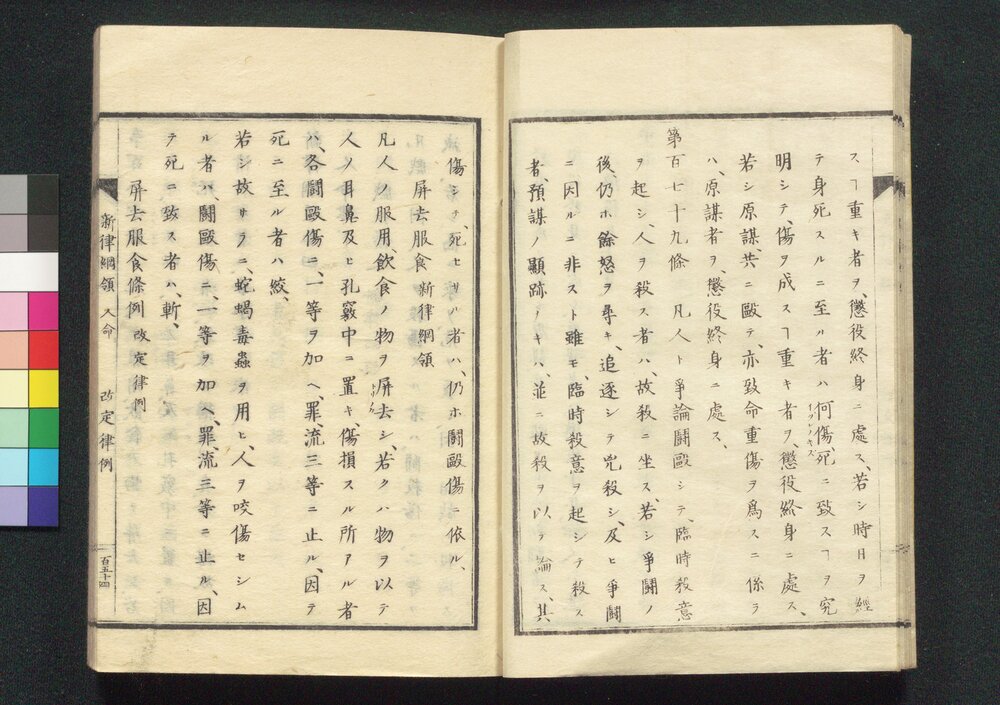 スヿ重キ者ヲ、懲役終身ニ處ス、若シ時日ヲ經
テ身死スルニ至ル者ハ何傷死ニ致スヿヲ究
明シテ、傷ヲ成スヿ重キ者ヲ、懲役終身ニ處ス、
若シ原謀、共ニ毆テ、亦致命重傷ヲ爲スニ係ラ
ハ、原謀者ヲ、懲役終身ニ處ス、
第百七十九條 凡人ト爭論鬪毆シテ、臨時殺意
ヲ起シ、人ヲ殺ス者ハ、故殺ニ坐ス、若シ爭鬪ノ
後、仍ホ餘怒ヲ尋キ、追逐シテ兇殺シ、及ヒ爭鬪
ニ因ルニ非スト雖モ、臨時殺意ヲ起シテ殺ス
者、預謀ノ顯跡ノキハ、並ニ故殺ヲ以テ論ス、其
傷シテ、死セサル者ハ、仍ホ鬪毆傷ニ依ル、
屏去服食 新律綱領
凡人ノ服用、飮食ノ物ヲ屏去シ、若クハ物ヲ以テ
人ノ耳鼻及ヒ孔竅中ニ置キ、傷損スル所アル者
ハ、各鬪毆傷ニ、一等ヲ加ヘ、罪、流三等ニ止ル、因テ
死ニ至ル者ハ絞、
若シ故サラニ、蛇蝎毒蟲ヲ用ヒ、人ヲ咬傷セシム
ル者ハ、鬪毆傷ニ、一等ヲ加ヘ、罪、流三等ニ止ル、因
テ死ニ致ス者ハ、斬、
屏去服食條例 改定律例
新律綱領 人命 改定律例
百五十四